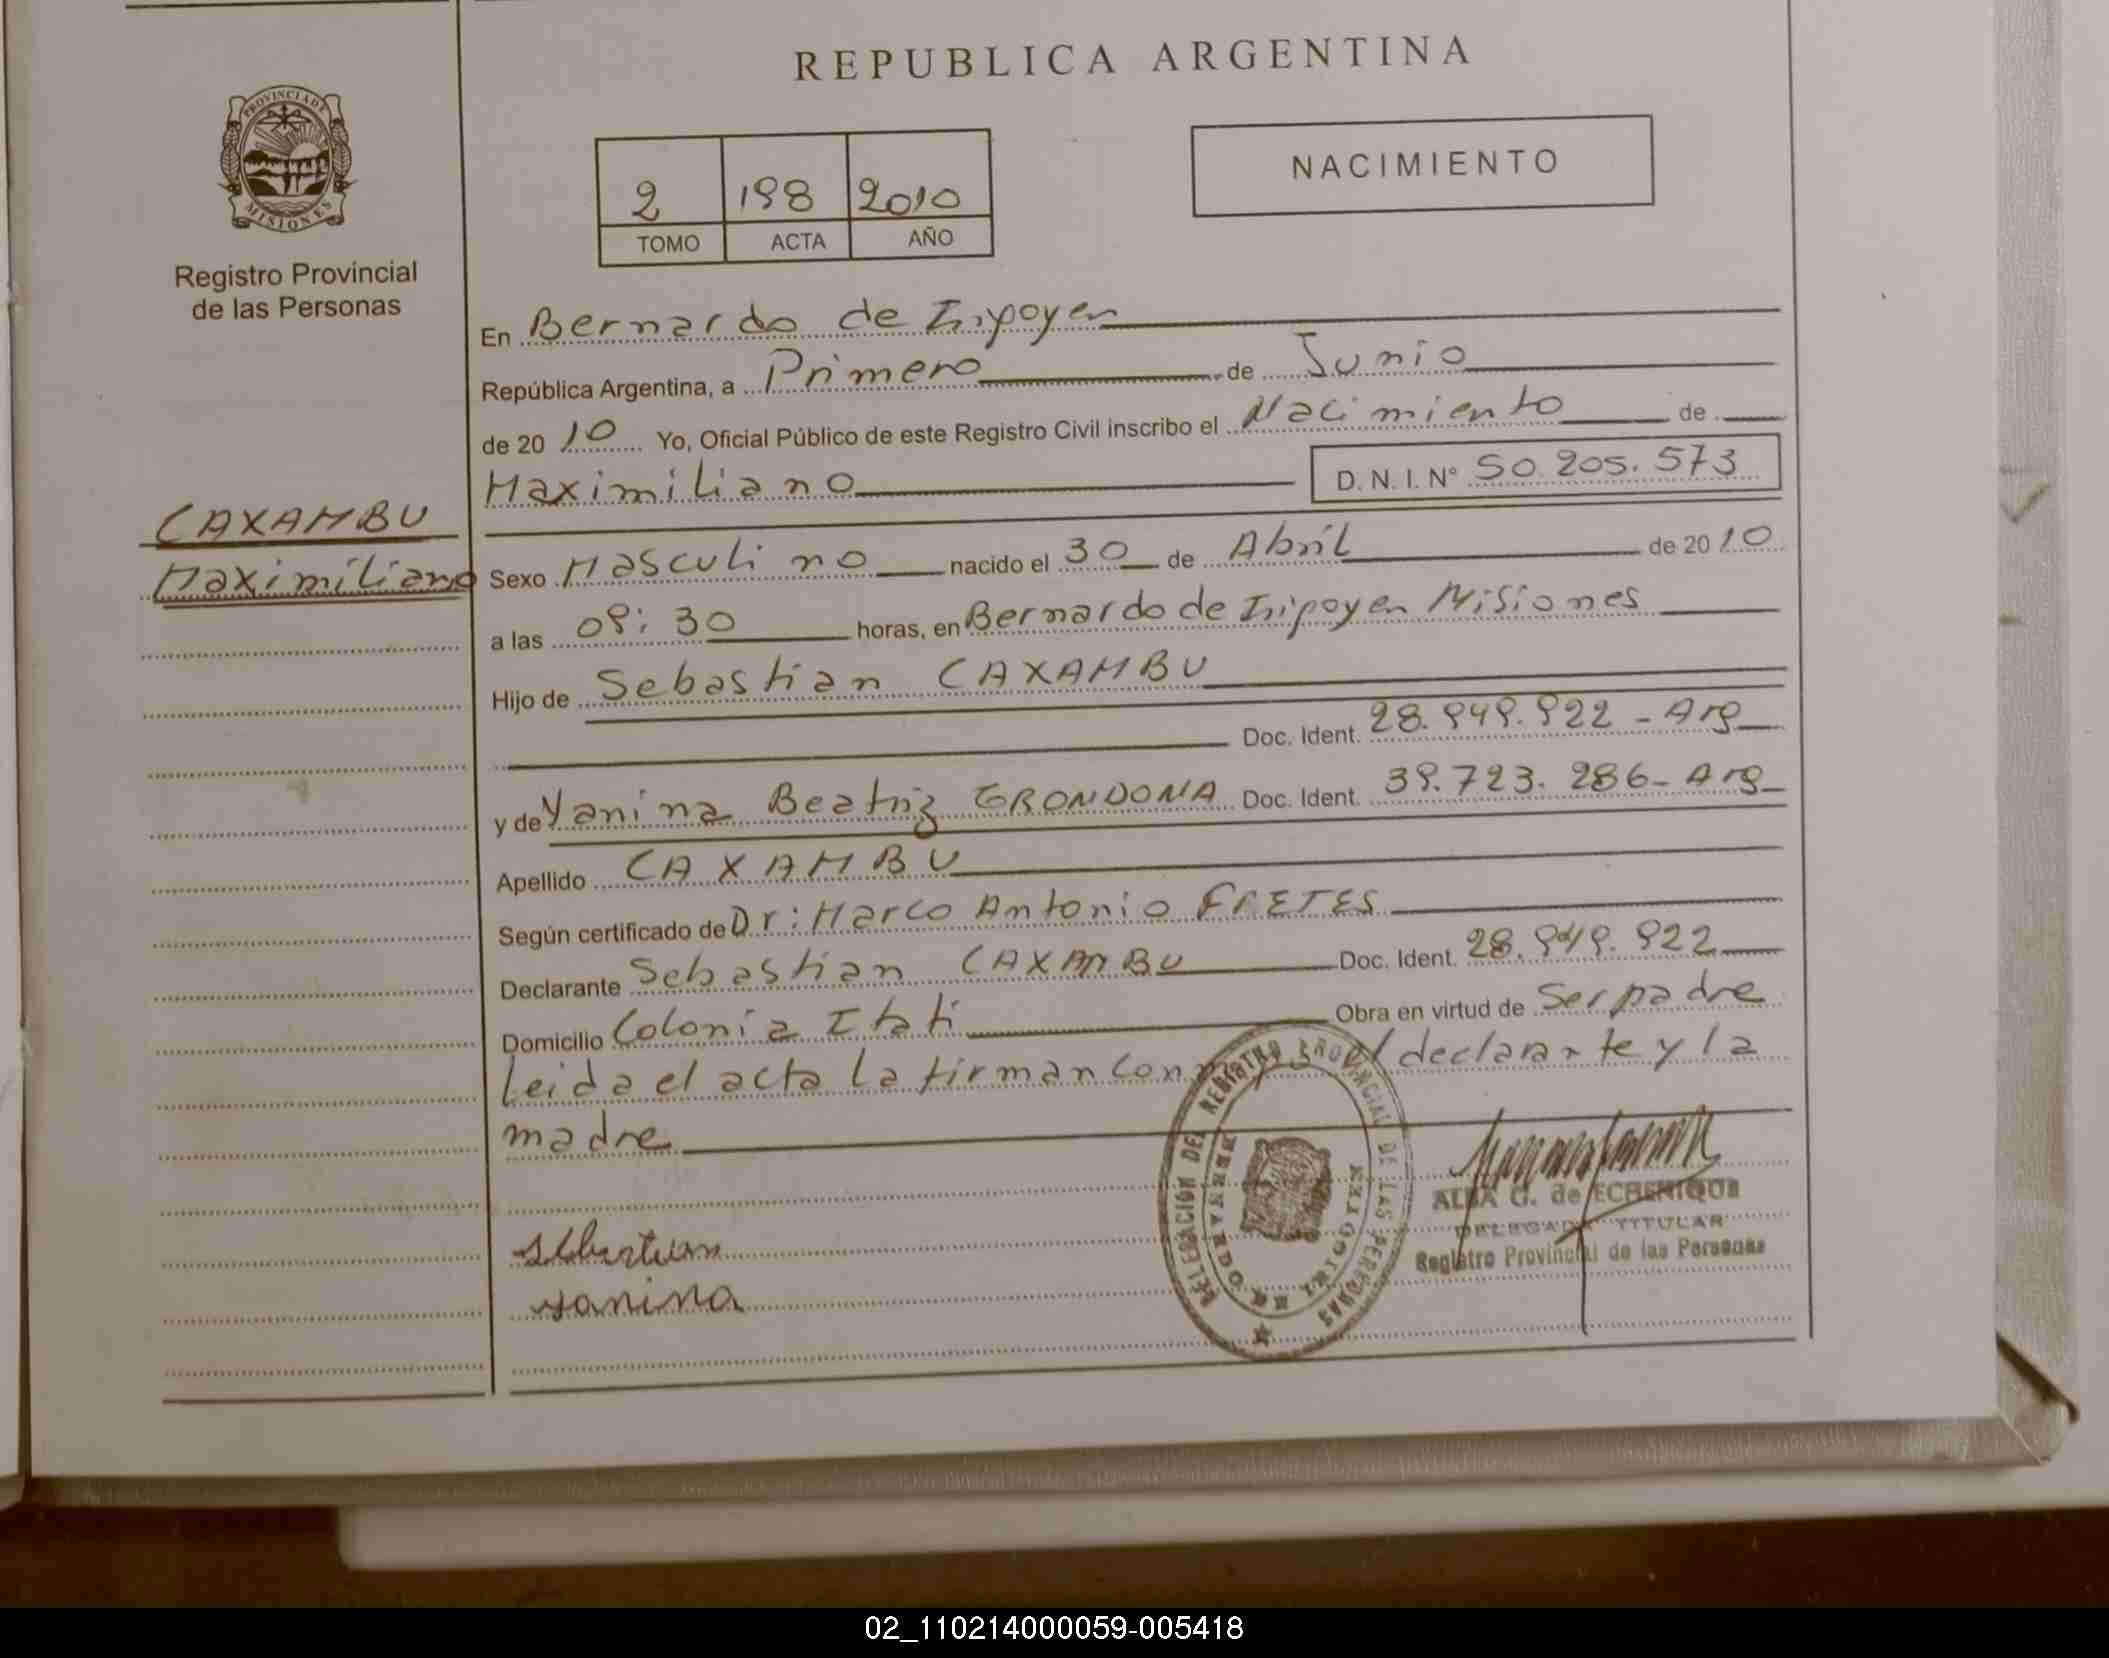 REPUBLICA ARGENTINA
PROVINCIA DE
MISIONES
Registro Provincial
de las Personas
2 198 2010
TOMO ACTA AÑO
NACIMIENTO
En Bernardo de Irigoyen
República Argentina, a Primero de Junio
de 2010 Yo, Oficial Público de este Registro Civil inscribo el Nacimiento de
Maximiliano D. N. I. Nº 50.205.573
CAXAMBU
Maximiliano
Sexo Masculino nacido el 30 de Abril de 2010
a las 09:30 horas, en Bernardo de Irigoyen Misiones
Hijo de Sebastian CAXAMBU
Doc. Ident. 28.949.922 - Arg
y de Yanina Beatriz GRONDONA Doc. Ident. 39.723.286 - Arg
Apellido CAXAMBU
Según certificado de Dr: Marco Antonio FRETES
Declarante Sebastian CAXAMBU Doc. Ident. 28.949.922
Domicilio Colonia Itati Obra en virtud de Ser padre
Leida el acta La firman con el declarante y la
madre
Sebastian
Yanina
DELEGACIÓN DEL REGISTRO PROVINCIAL DE LAS PERSONAS
ALBA G. de ECHENIQUE
DELEGADA TITULAR
Registro Provincial de las Personas
02_110214000059-005418